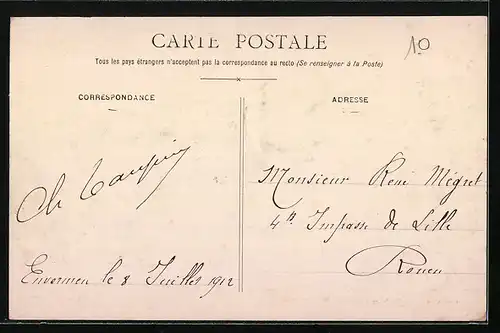 CARTE POSTALE
10
Tous les pays étrangers n'acceptent pas la correspondance au recto (Se renseigner à la Poste)
CORRESPONDANCE
Ch
Envermeu le 8 Juillet 1912
ADRESSE
Monsieur René Mégret
4 Impasse de Lille
Rouen